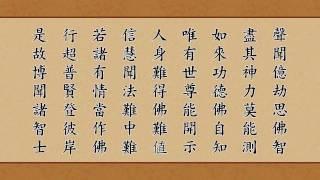 聲聞億劫思佛智
盡其神力莫能測
如來功德佛自知
唯有世尊能開示
人身難得佛難值
信慧聞法難中難
若諸有情當作佛
行超普賢登彼岸
是故博聞諸智士